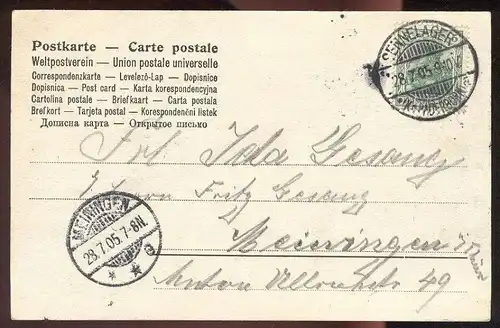 Postkarte — Carte postale
Weltpostverein — Union postale universelle
Correspondenzkarte — Levelező-Lap — Dopisnice
Dopisnica — Post card — Karta korespondencyjna
Cartolina postale — Briefkaart — Carta postala
Brefkort — Tarjeta postal — Korespondenční listek
Дописна карта — Открытое письмо
SENNELAGER
28.7.05.
Frl. Ida Gesang
Herrn Fritz Gesang
Meiningen
Anton Ullrichstr 49
MEININGEN
28.7.05.7-8N.
* * c